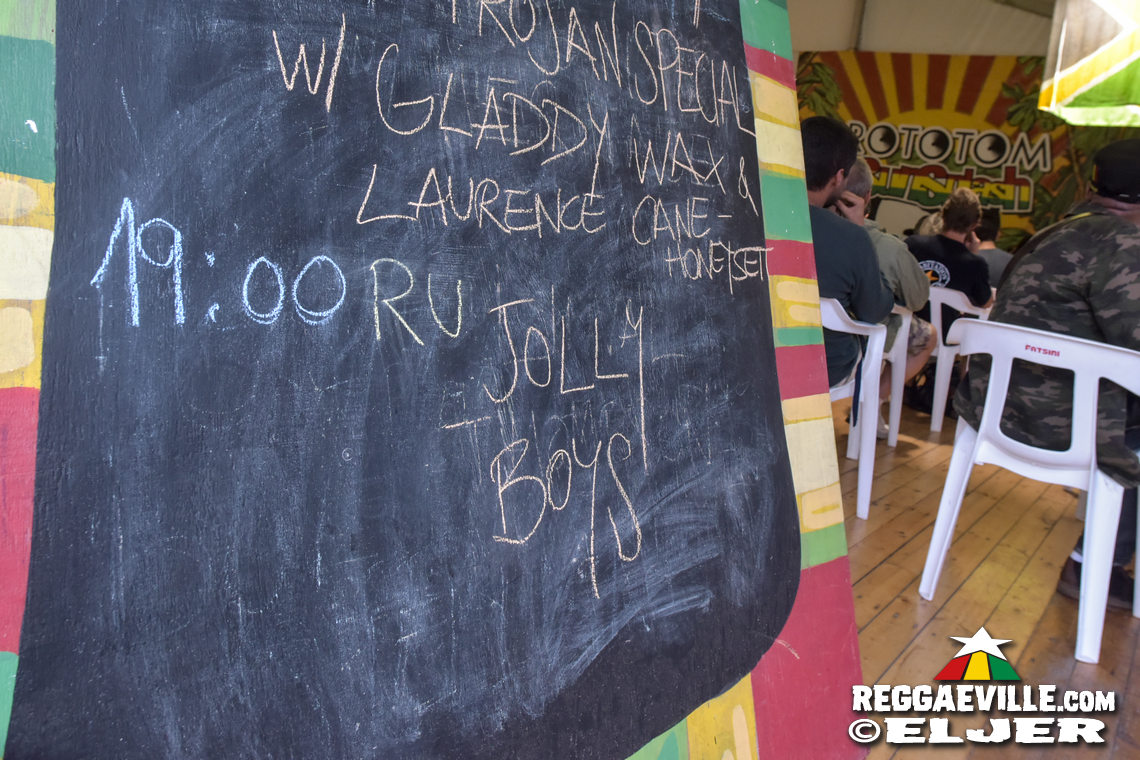 TROJAN SPECIAL
W/ GLADDY WAX &
LAURENCE CANE-
HONEYSET
19:00 RU JOLLY
BOYS
ROTOTOM
FATSINI
REGGAEVILLE.COM
©ELJER